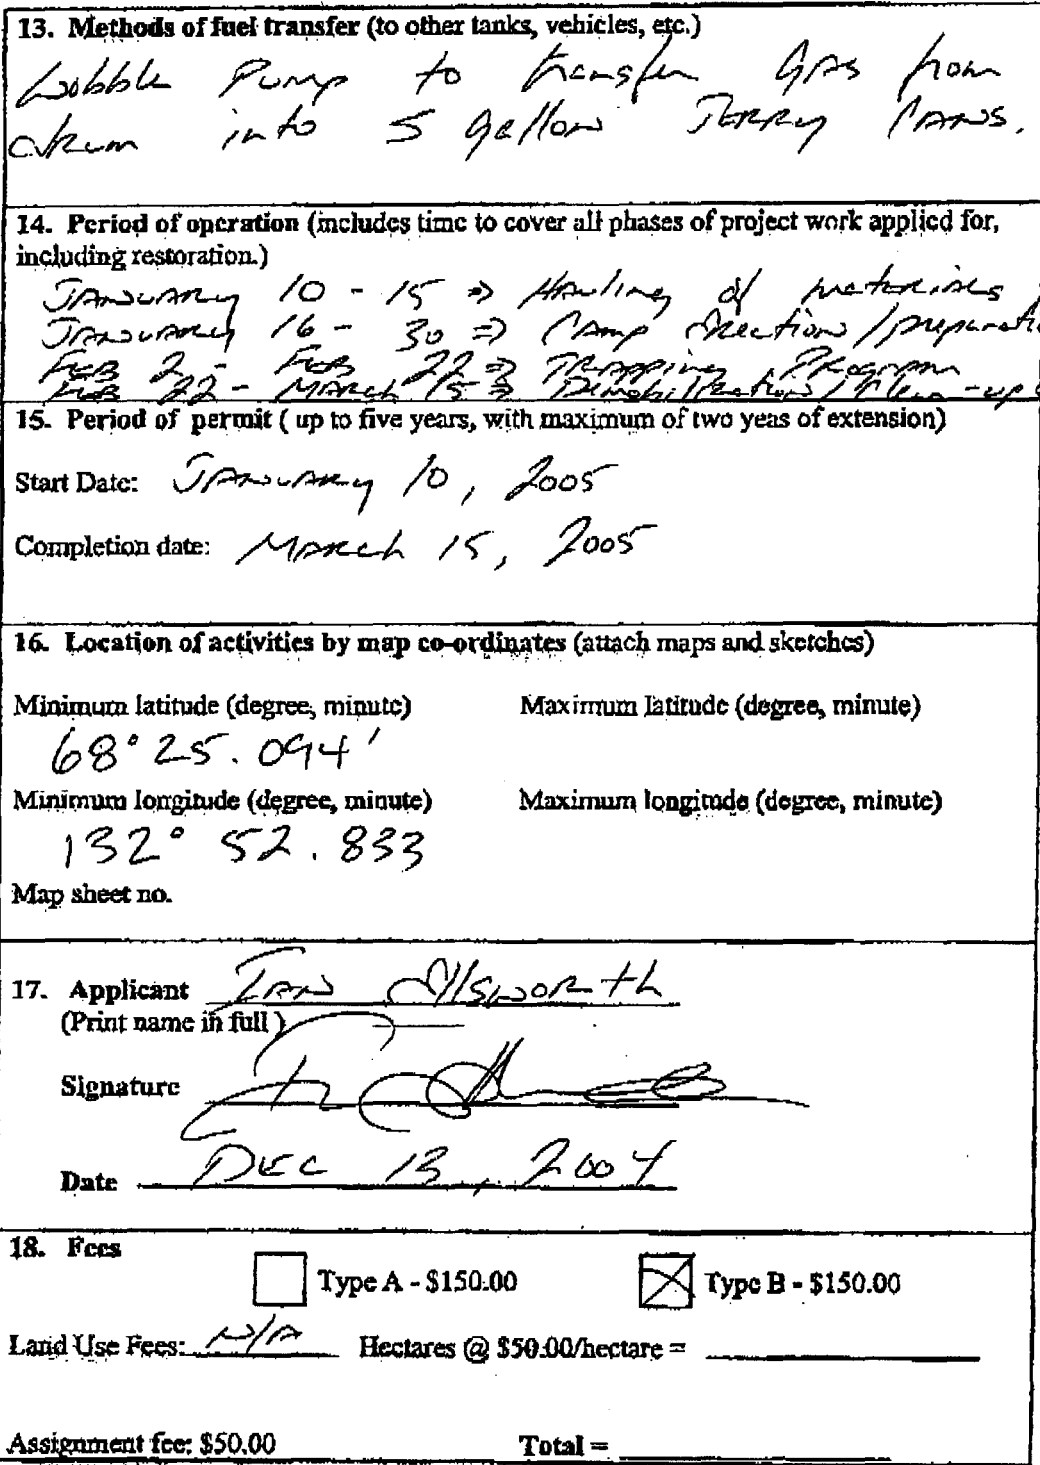 13. Methods of fuel transfer (to other tanks, vehicles, etc.)
Wobble Pump to transfer GAS from
drum into 5 gallon JERRY CANS.
14. Period of operation (includes time to cover all phases of project work applied for,
including restoration.)
JANUARY 10 - 15 => HAuling of materiALs
JANUARY 16 - 30 => CAmp erection /preparati
FEB 2 - FEB 22 => TRApping PRogRAm
FEB 22 - MARCH 15 => Demobilization / Clean-up
15. Period of permit ( up to five years, with maximum of two yeas of extension)
Start Date: JANUARY 10, 2005
Completion date: MARch 15, 2005
16. Location of activities by map co-ordinates (attach maps and sketches)
Minimum latitude (degree, minute) Maximum latitude (degree, minute)
68° 25.094'
Minimum longitude (degree, minute) Maximum longitude (degree, minute)
132° 52.833
Map sheet no.
17. Applicant IAN EllswoRth
(Print name in full )
Signature
Date DEC 13, 2004
18. Fees
Type A - $150.00 Type B - $150.00
Land Use Fees: N/A Hectares @ $50.00/hectare =
Assignment fee: $50.00 Total =